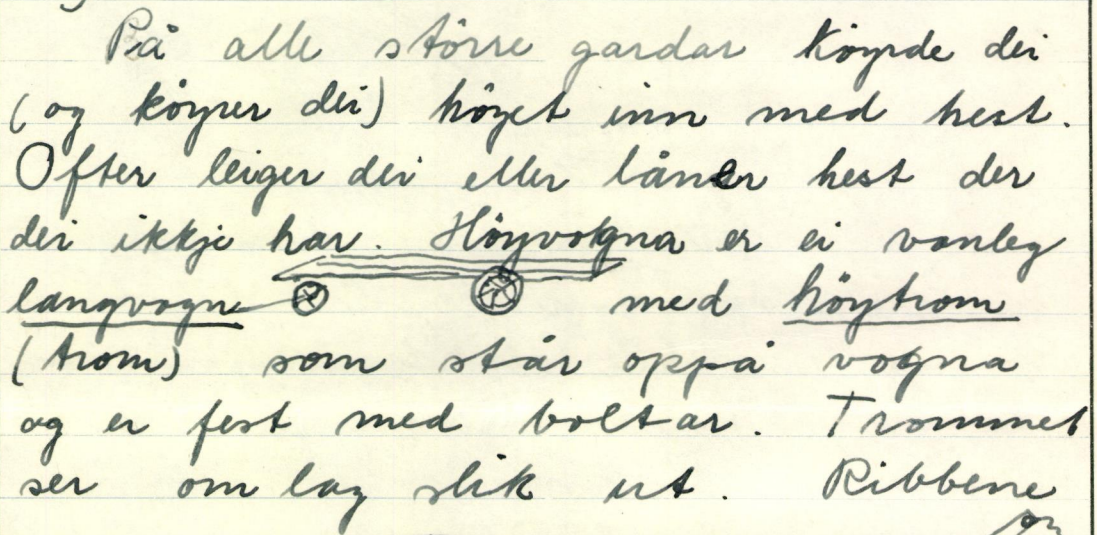 På alle större gardar köyrde dei
(og köyrer dei) höyet inn med hest.
Ofter leiger dei eller låner hest der
dei ikkje har. Höyvogna er ei vanleg
langvogn med höytrom
(trom) som står oppå vogna
og er fest med boltar. Trommet
ser om lag slik ut. Ribbene